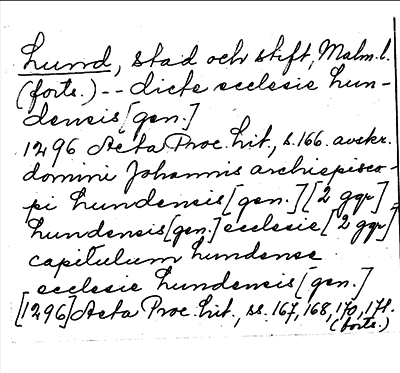 Lund, stad och stift, Malm. l.
(forts.) -- dicte ecclesie Lun-
densis [gen.]
1296 Acta Proc. Lit., s. 166. avskr.
domini Johannis archiepisco-
pi Lundensis [gen.] [2 ggr]
Lundensis [gen.] ecclesie [2 ggr]
capitulum Lundense
ecclesie Lundensis [gen.]
[1296] Acta Proc. Lit., ss. 167, 168, 170, 171.
(forts.)